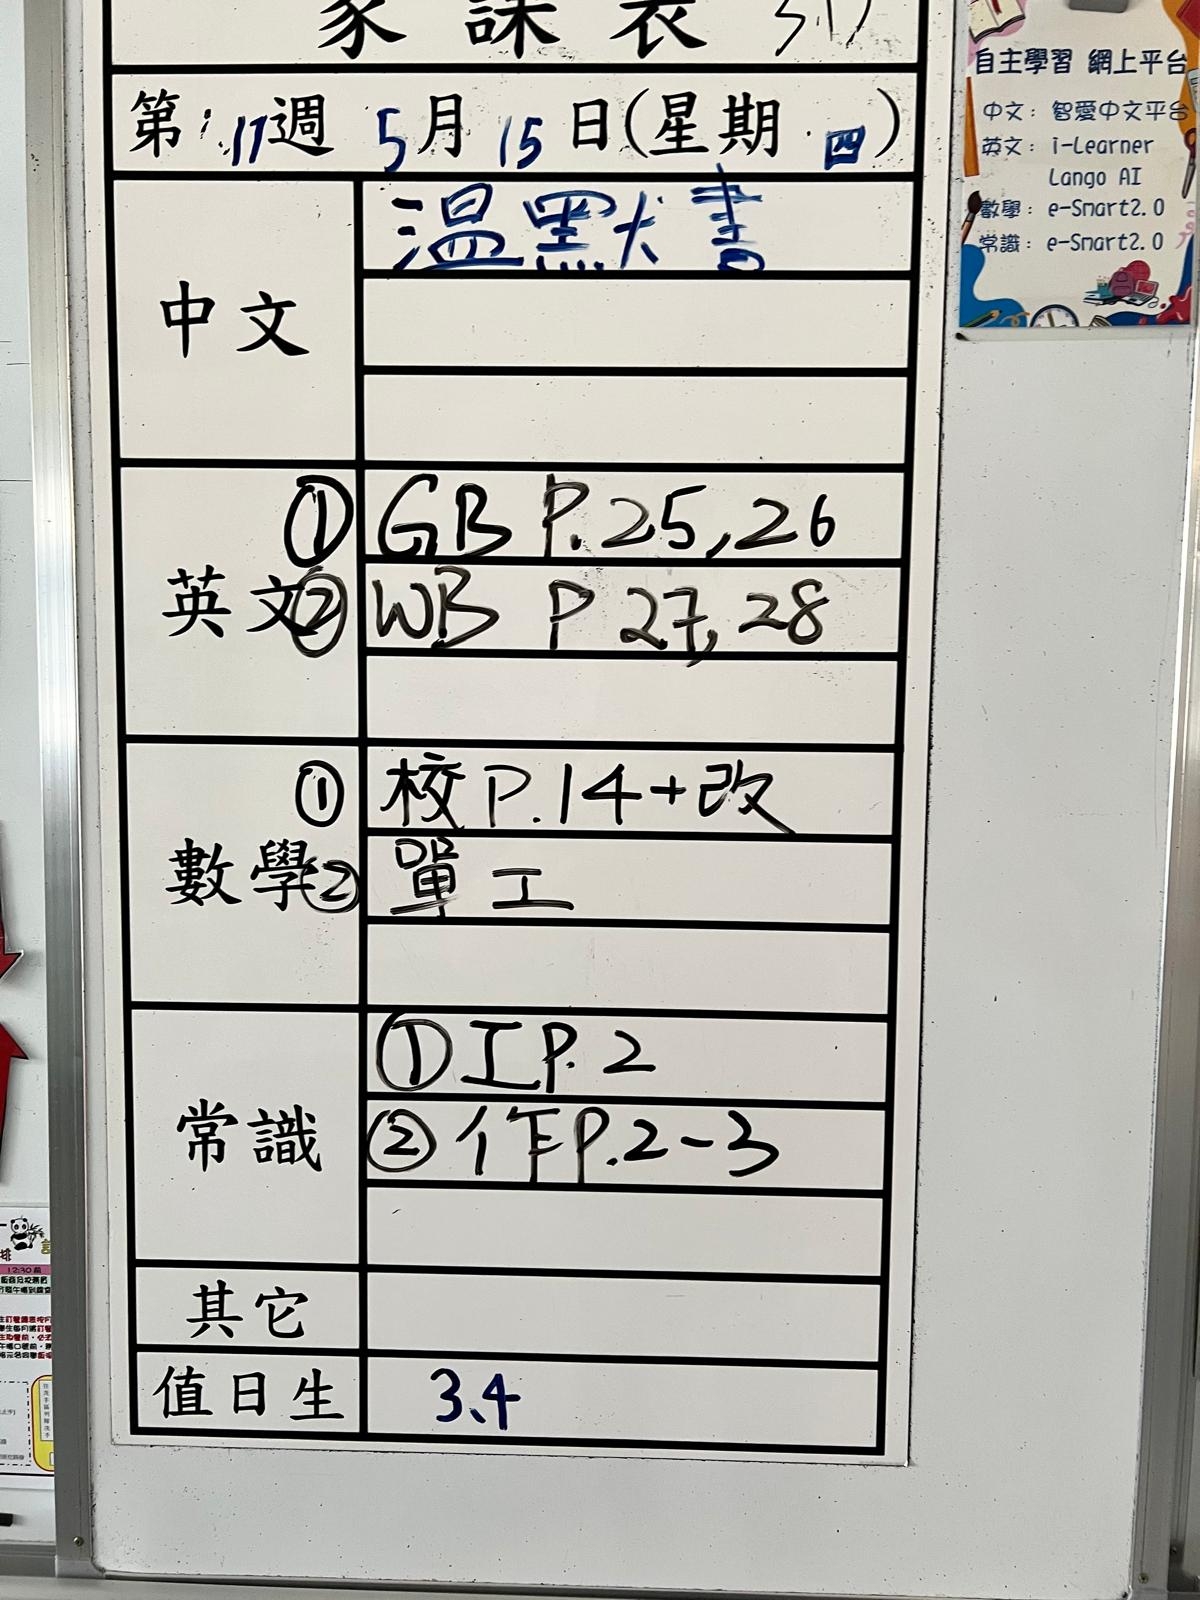 家課表
第17週 5月15日(星期四)
中文
溫默書
英文
① GB P.25,26
② WB P 27,28
數學
① 校P.14+改
② 單工
常識
①工P.2
②作P.2-3
其它
值日生
3、4
自主學習 網上平台
中文：智愛中文平台
英文：i-Learner
Lango AI
數學：e-Smart2.0
常識：e-Smart2.0
12:30前